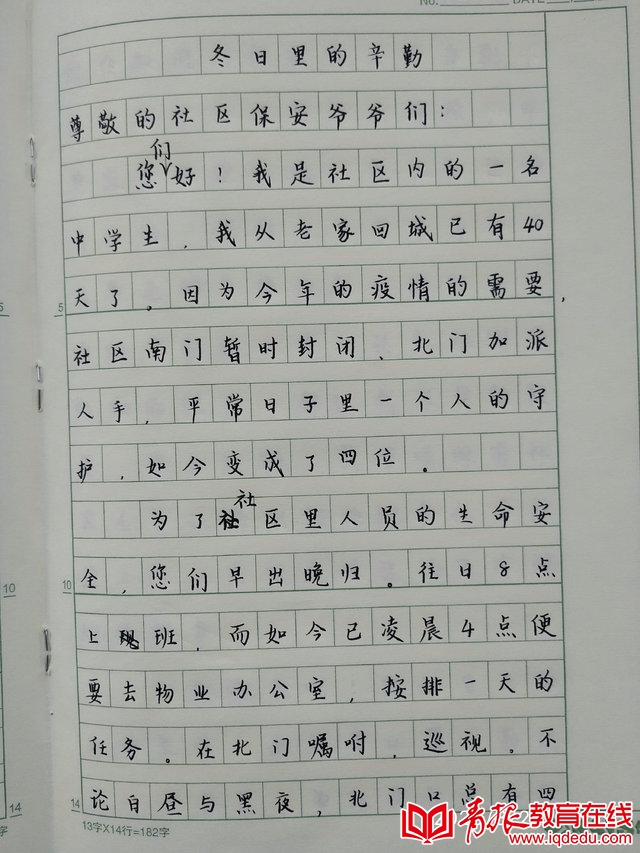 No. DATE
冬日里的辛勤
尊敬的社区保安爷爷们:
您们好!我是社区内的一名
中学生,我从老家回城已有40
天了。因为今年的疫情的需要,
社区南门暂时封闭、北门加派
人手,平常日子里一个人的守
护,如今变成了四位。
为了社区里人员的生命安
全,您们早出晚归。往日8点
上班,而如今已凌晨4点便
要去物业办公室,按排一天的
任务。在北门嘱咐,巡视。不
论白昼与黑夜,北门口总有四
5
10
14
5
10
14
13字X14行=182字
青报教育在线
www.iqdedu.com